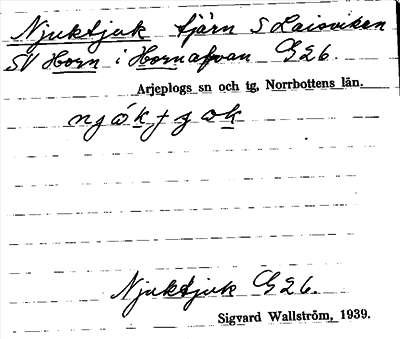 Njuktjuk tjärn S Laisviken
SV Horn i Hornavan G26.
Arjeplogs sn och tg, Norrbottens län.
Njuktjuk G26.
Sigvard Wallström, 1939.